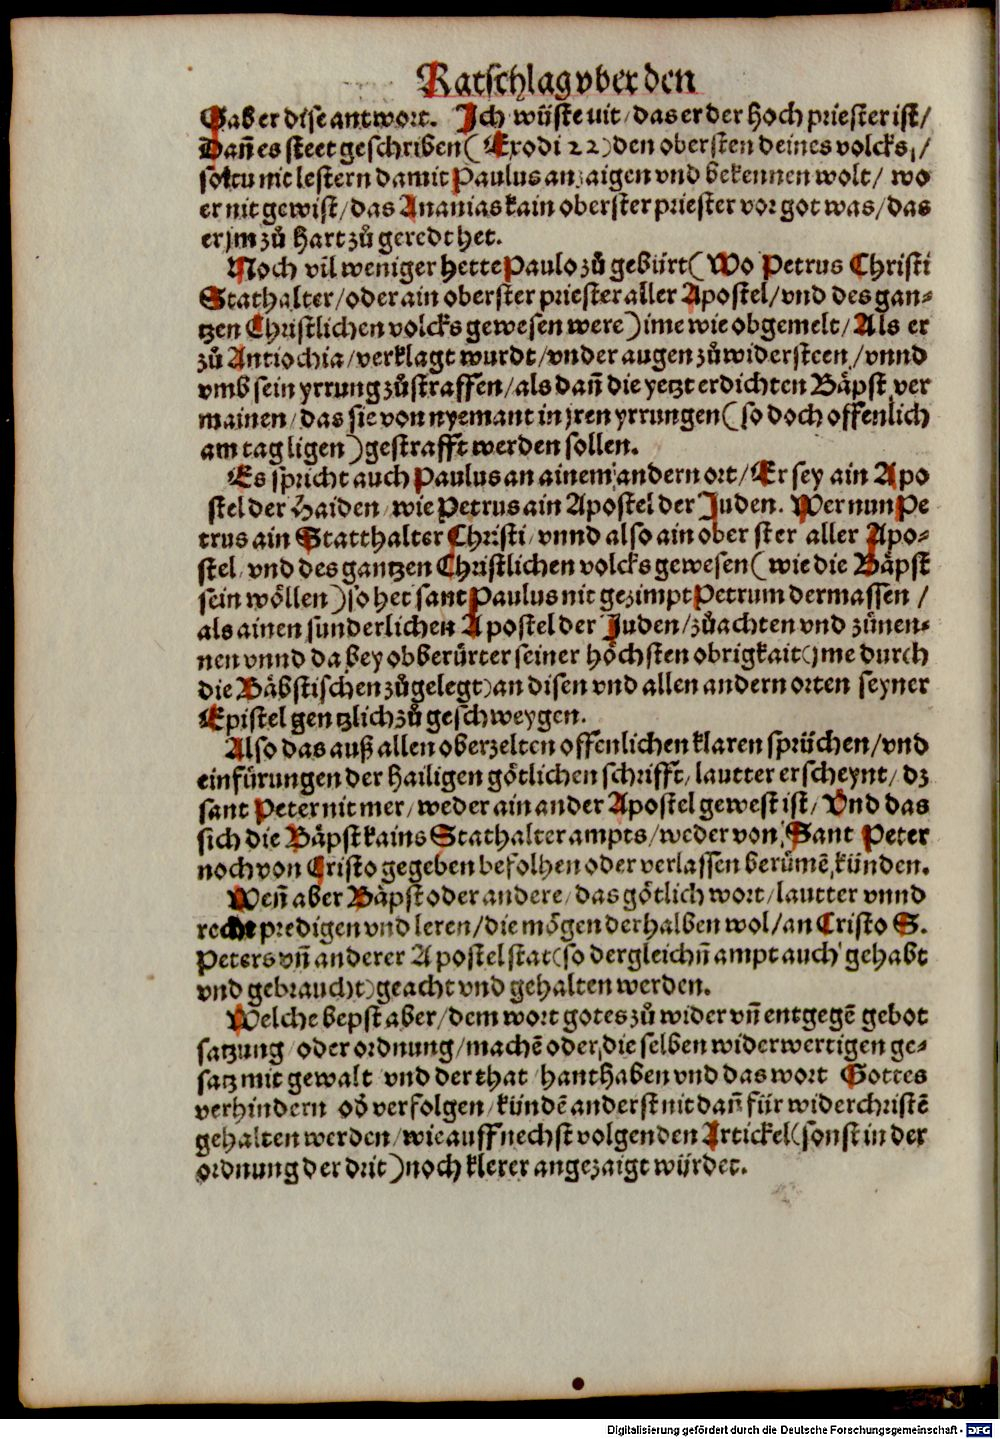 Ratschlag vber den
Gab er dise antwort. Jch wüste uit / das er der hoch priester ist /
Dañ es steet geschriben ( Exodi 22) den obersten deines volcks, /
soltu nit lestern damit Paulus anzaigen vnd bekennen wolt / wo
er nit gewist / das Ananias kain oberster priester vor got was / das
er jm zů hart zů geredt het.
Noch vil weniger hette Paulo zů gebürt ( Wo Petrus Christi
Stathalter / oder ain oberster priester aller Apostel / vnd des gan-
tzen Christlichen volcks gewesen were ) ime wie obgemelt / Als er
zů Antiochia / verklagt wurdt / vnder augen zůwidersteen / vnnd
vmb sein yrrung zůstraffen / als dañ die yetzt erdichten Bäpst ver
mainen / das sie von nyemant in jren yrrungen ( so doch offenlich
am tag ligen ) gestrafft werden sollen.
Es spricht auch Paulus an ainem andern ort / Er sey ain Apo
stel der Haiden / wie Petrus ain Apostel der Juden. Wer nun Pe
trus ain Statthalter Christi / vnnd also ain ober ster aller Apo-
stel / vnd des gantzen Christlichen volcks gewesen ( wie die Bäpst
sein wöllen ) so het sant Paulus nit gezimpt Petrum dermassen /
als ainen sunderlichen Apostel der Juden / zůachten vnd zůnen-
nen vnnd da bey obberürter seiner höchsten obrigkait (jme durch
die Bäbstischen zůgelegt) an disen vnd allen andern orten seyner
Epistel gentzlich zů geschweygen.
Also das auß allen oberzelten offenlichen klaren sprüchen / vnd
einfürungen der hailigen götlichen schrifft / lautter erscheynt / dz
sant Peter nit mer / weder ain ander Apostel gewest ist / Vnd das
sich die Bäpst kains Stathalter ampts / weder von Sant Peter
noch von Cristo gegeben befolhen oder verlassen berümē künden.
Weñ aber Bäpst oder andere / das götlich wort / lautter vnnd
recht predigen vnd leren / die mögen derhalben wol / an Cristo S.
Peters vñ anderer Apostel stat (so dergleichñ ampt auch gehabt
vnd gebraucht) geacht vnd gehalten werden.
Welche bepst aber / dem wort gotes zů wider vñ entgegē gebot
satzung / oder ordnung / machē oder die selben widerwertigen ge-
satz mit gewalt vnd der that / hanthaben vnd das wort Gottes
verhindern od verfolgen / kündē anderst nit dañ für widerchristē
gehalten werden / wie auff nechst volgenden Artickel (sonst in der
ordnung der drit ) noch klerer angezaigt würdet.
Digitalisierung gefördert durch die Deutsche Forschungsgemeinschaft - DFG